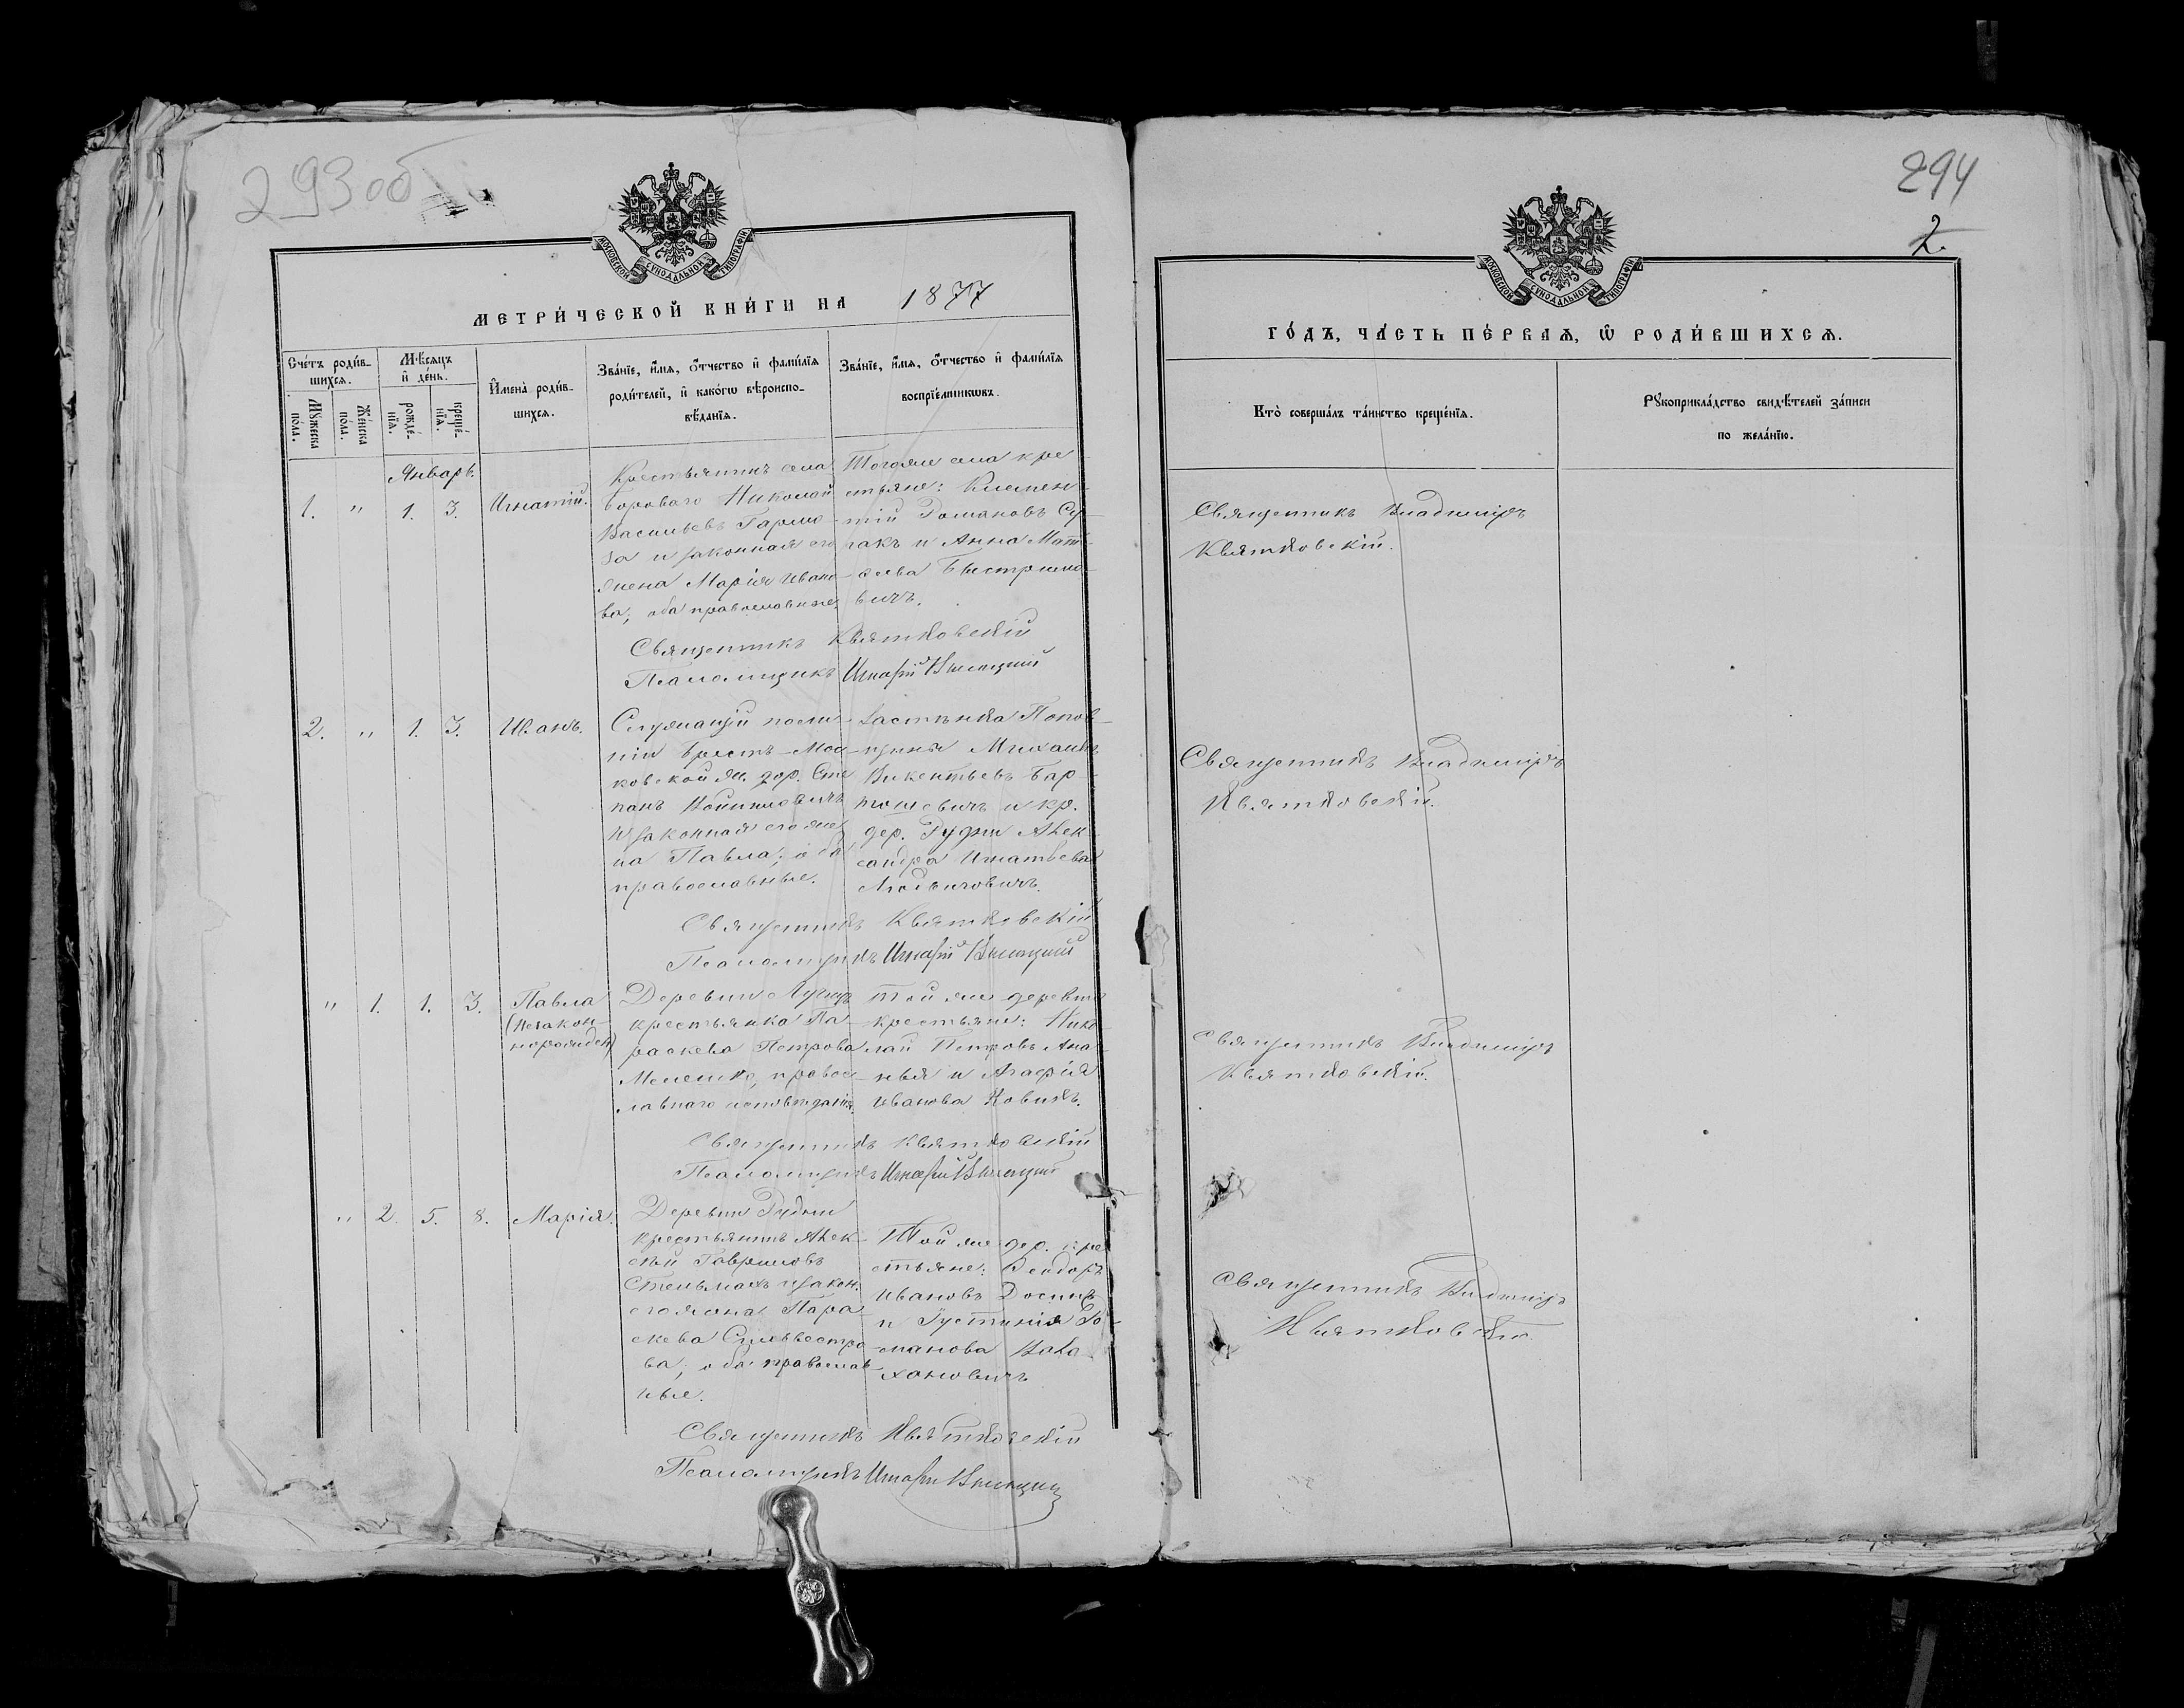 293 об
МОСКОВСКОЙ СУНОДАЛЬНОЙ ТИПОГРАФІИ
МЕТРИ́ЧЕСКОЙ КНИ́ГИ НА 1877
Сче́тъ роди́в-
шихся.
Мѣ́сяцъ
и҆ де́нь.
Му́жеска
по́ла.
Же́нска
по́ла.
рожде́-
нїя.
креще́-
нїя.
И҆мена̀ роди́в-
шихся.
Зва́нїе, и҆́мя, ѻ҆́тчество и҆ фамѝлїя
роди́телей, и҆ како́гѡ вѣроиспо-
вѣ́данїя.
Зва́нїе, и҆́мя, ѻ҆́тчество и҆ фамѝлїя
воспрїе́мникѡвъ.
Январь.
1. " 1. 3.
Игнатій.
Крестьянинъ села
Борового Николай
Васильевъ Гармо-
за и законная его
жена Марія Ивано-
ва; оба православные.
Тогоже села кре
стьяне: Климен-
тій Романовъ Су-
гакъ и Анна Мат-
ѳеева Быстримо-
вичъ.
Священникъ Квятковскій
Псаломщикъ Игнатій
2. " 1. 3.
Иванъ.
Служащій на
ніи Брестъ-Мос-
ковской ж. дор. Сте
панъ
и законная его же
на Павла; оба
православные.
Застѣнка Попов-
щины Михаилъ
Викентьевъ Бар-
тошевичъ и кр.
дер. Рудни Алек
сандра Игнатьева
Священникъ Квятковскій
Псаломщикъ Игнатій
" 1. 1. 3.
Павла
(Незакон-
норожден)
Деревни Лучицъ
крестьянка Па-
раскева Петрова
Мелешко, правос-
лавнаго исповѣданія.
Той же деревни
крестьяне: Нико-
лай Петровъ Ана-
нья и Агафія
Иванова Новикъ.
Священникъ Квятковскій
Псаломщикъ Игнатій
" 2. 5. 8.
Марія.
Деревни Рудни
крестьянинъ Алек-
сѣй Гавриловъ
Стельмахъ и закон.
его жена Пара-
скева Сильвестро
ва; оба православ-
ные.
Той же дер. кре
стьяне: Ѳеодоръ
Ивановъ
и Іустинія Ро-
манова
Священникъ Квятковскій
Псаломщикъ Игнатій
294
2.
МОСКОВСКОЙ СУНОДАЛЬНОЙ ТИПОГРАФІИ
ГО́ДЪ, ЧА́СТЬ ПЕ́РВАЯ, Ѽ РОДИ́ВШИХСЯ.
Кто̀ соверша́лъ та́инство креще́нїя.
Рꙋкоприкла́дство свидѣ́телей за́писи
по жела́нїю.
Священникъ Владиміръ
Квятковскій.
Священникъ Владиміръ
Квятковскій.
Священникъ Владиміръ
Квятковскій.
Священникъ Владиміръ
Квятковскій.